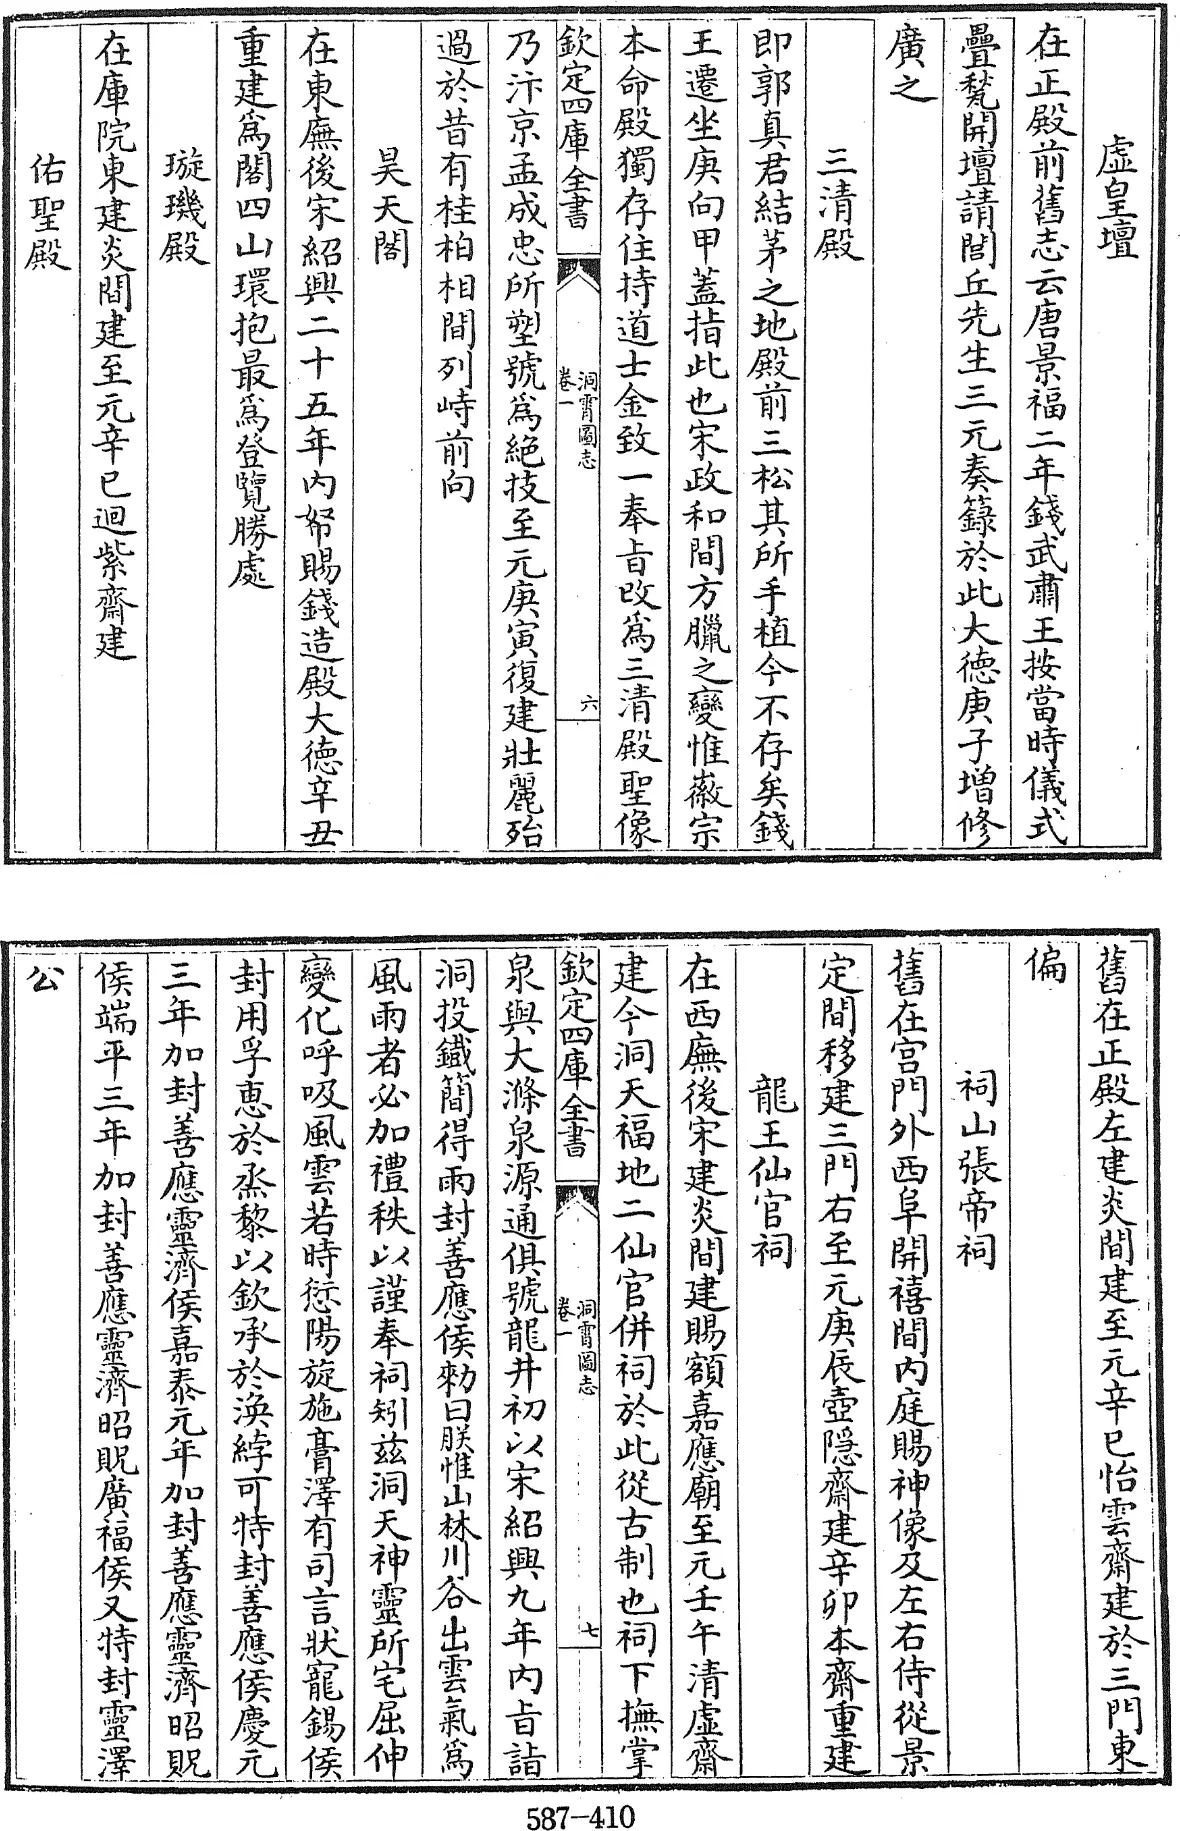 虛皇壇
在正殿前舊志云唐景福二年錢武肅王按當時儀式
疊甃開壇請閭丘先生三元奏籙於此大德庚子增修
廣之
三清殿
即郭真君結茅之地殿前三松其所手植今不存矣錢
王遷坐庚向甲蓋指此也宋政和間方臘之變惟徽宗
本命殿獨存住持道士金致一奉旨改為三清殿聖像
欽定四庫全書
洞霄圖志
卷一
六
乃汴京孟成忠所塑號為絶技至元庚寅復建壯麗殆
過於昔有桂柏相間列峙前向
昊天閣
在東廡後宋紹興二十五年內帑賜錢造殿大德辛丑
重建為閣四山環抱最為登覽勝處
璇璣殿
在庫院東建炎間建至元辛巳迴紫齋建
佑聖殿
舊在正殿左建炎間建至元辛巳怡雲齋建於三門東
偏
祠山張帝祠
舊在宫門外西阜開禧間内庭賜神像及左右侍從景
定間移建三門右至元庚辰壺隠齋建辛卯本齋重建
龍王仙官祠
在西廡後宋建炎間建賜額嘉應廟至元壬午清虛齋
建今洞天福地二仙官併祠於此從古制也祠下撫掌
欽定四庫全書
洞霄圖志
卷一
七
泉與大滌泉源通俱號龍井初以宋紹興九年内旨詣
洞投鐵簡得雨封善應侯勑曰朕惟山林川谷出雲氣為
風雨者必加禮秩以謹奉祠矧兹洞天神靈所宅屈伸
變化呼吸風雲若時愆陽旋施膏澤有司言狀寵錫侯
封用孚惠於烝黎以欽承於渙綍可特封善應侯慶元
三年加封善應靈濟侯嘉泰元年加封善應靈濟昭貺
侯端平三年加封善應靈濟昭貺廣福侯又特封靈澤
公
587-410